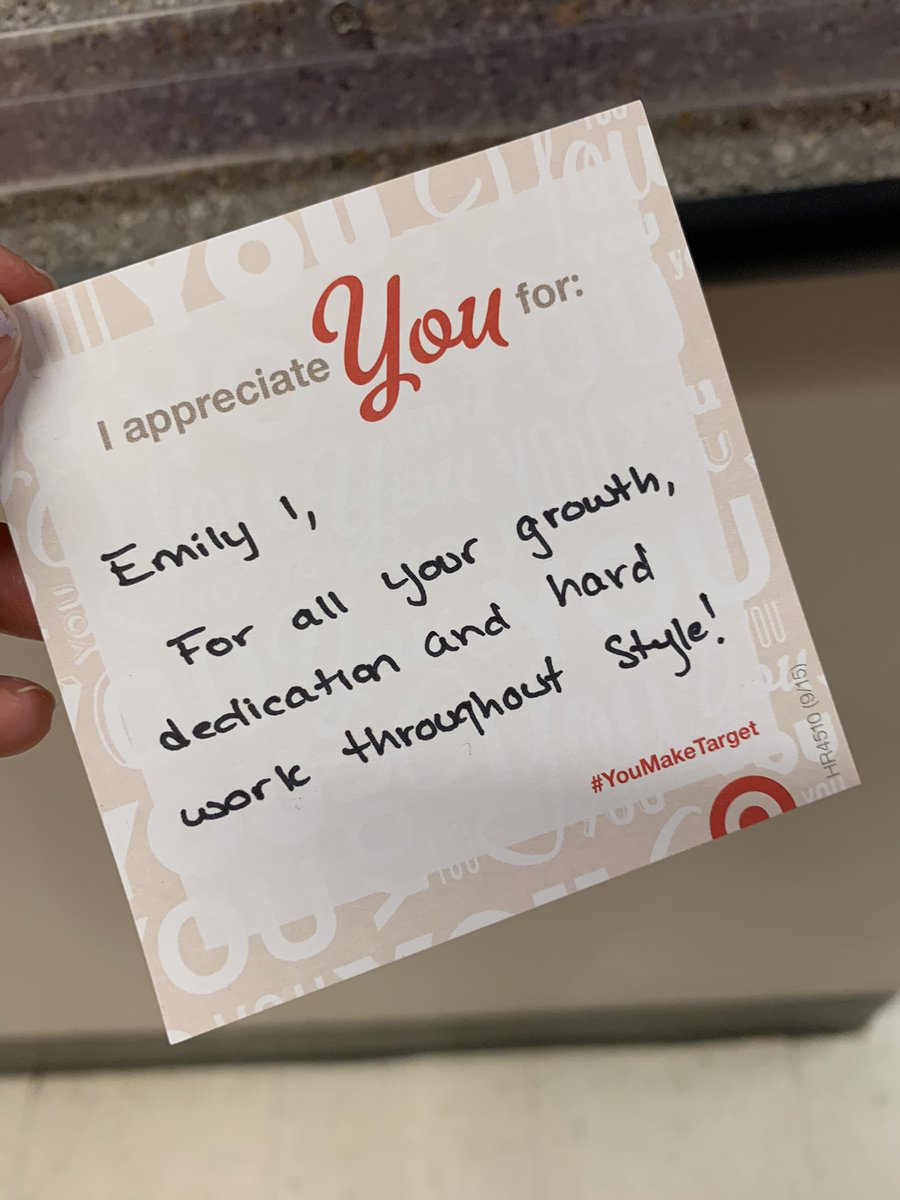 I appreciate You for:
Emily I,
For all your growth,
dedication and hard
work throughout Style!
#YouMakeTarget
HR4510 (9/15)